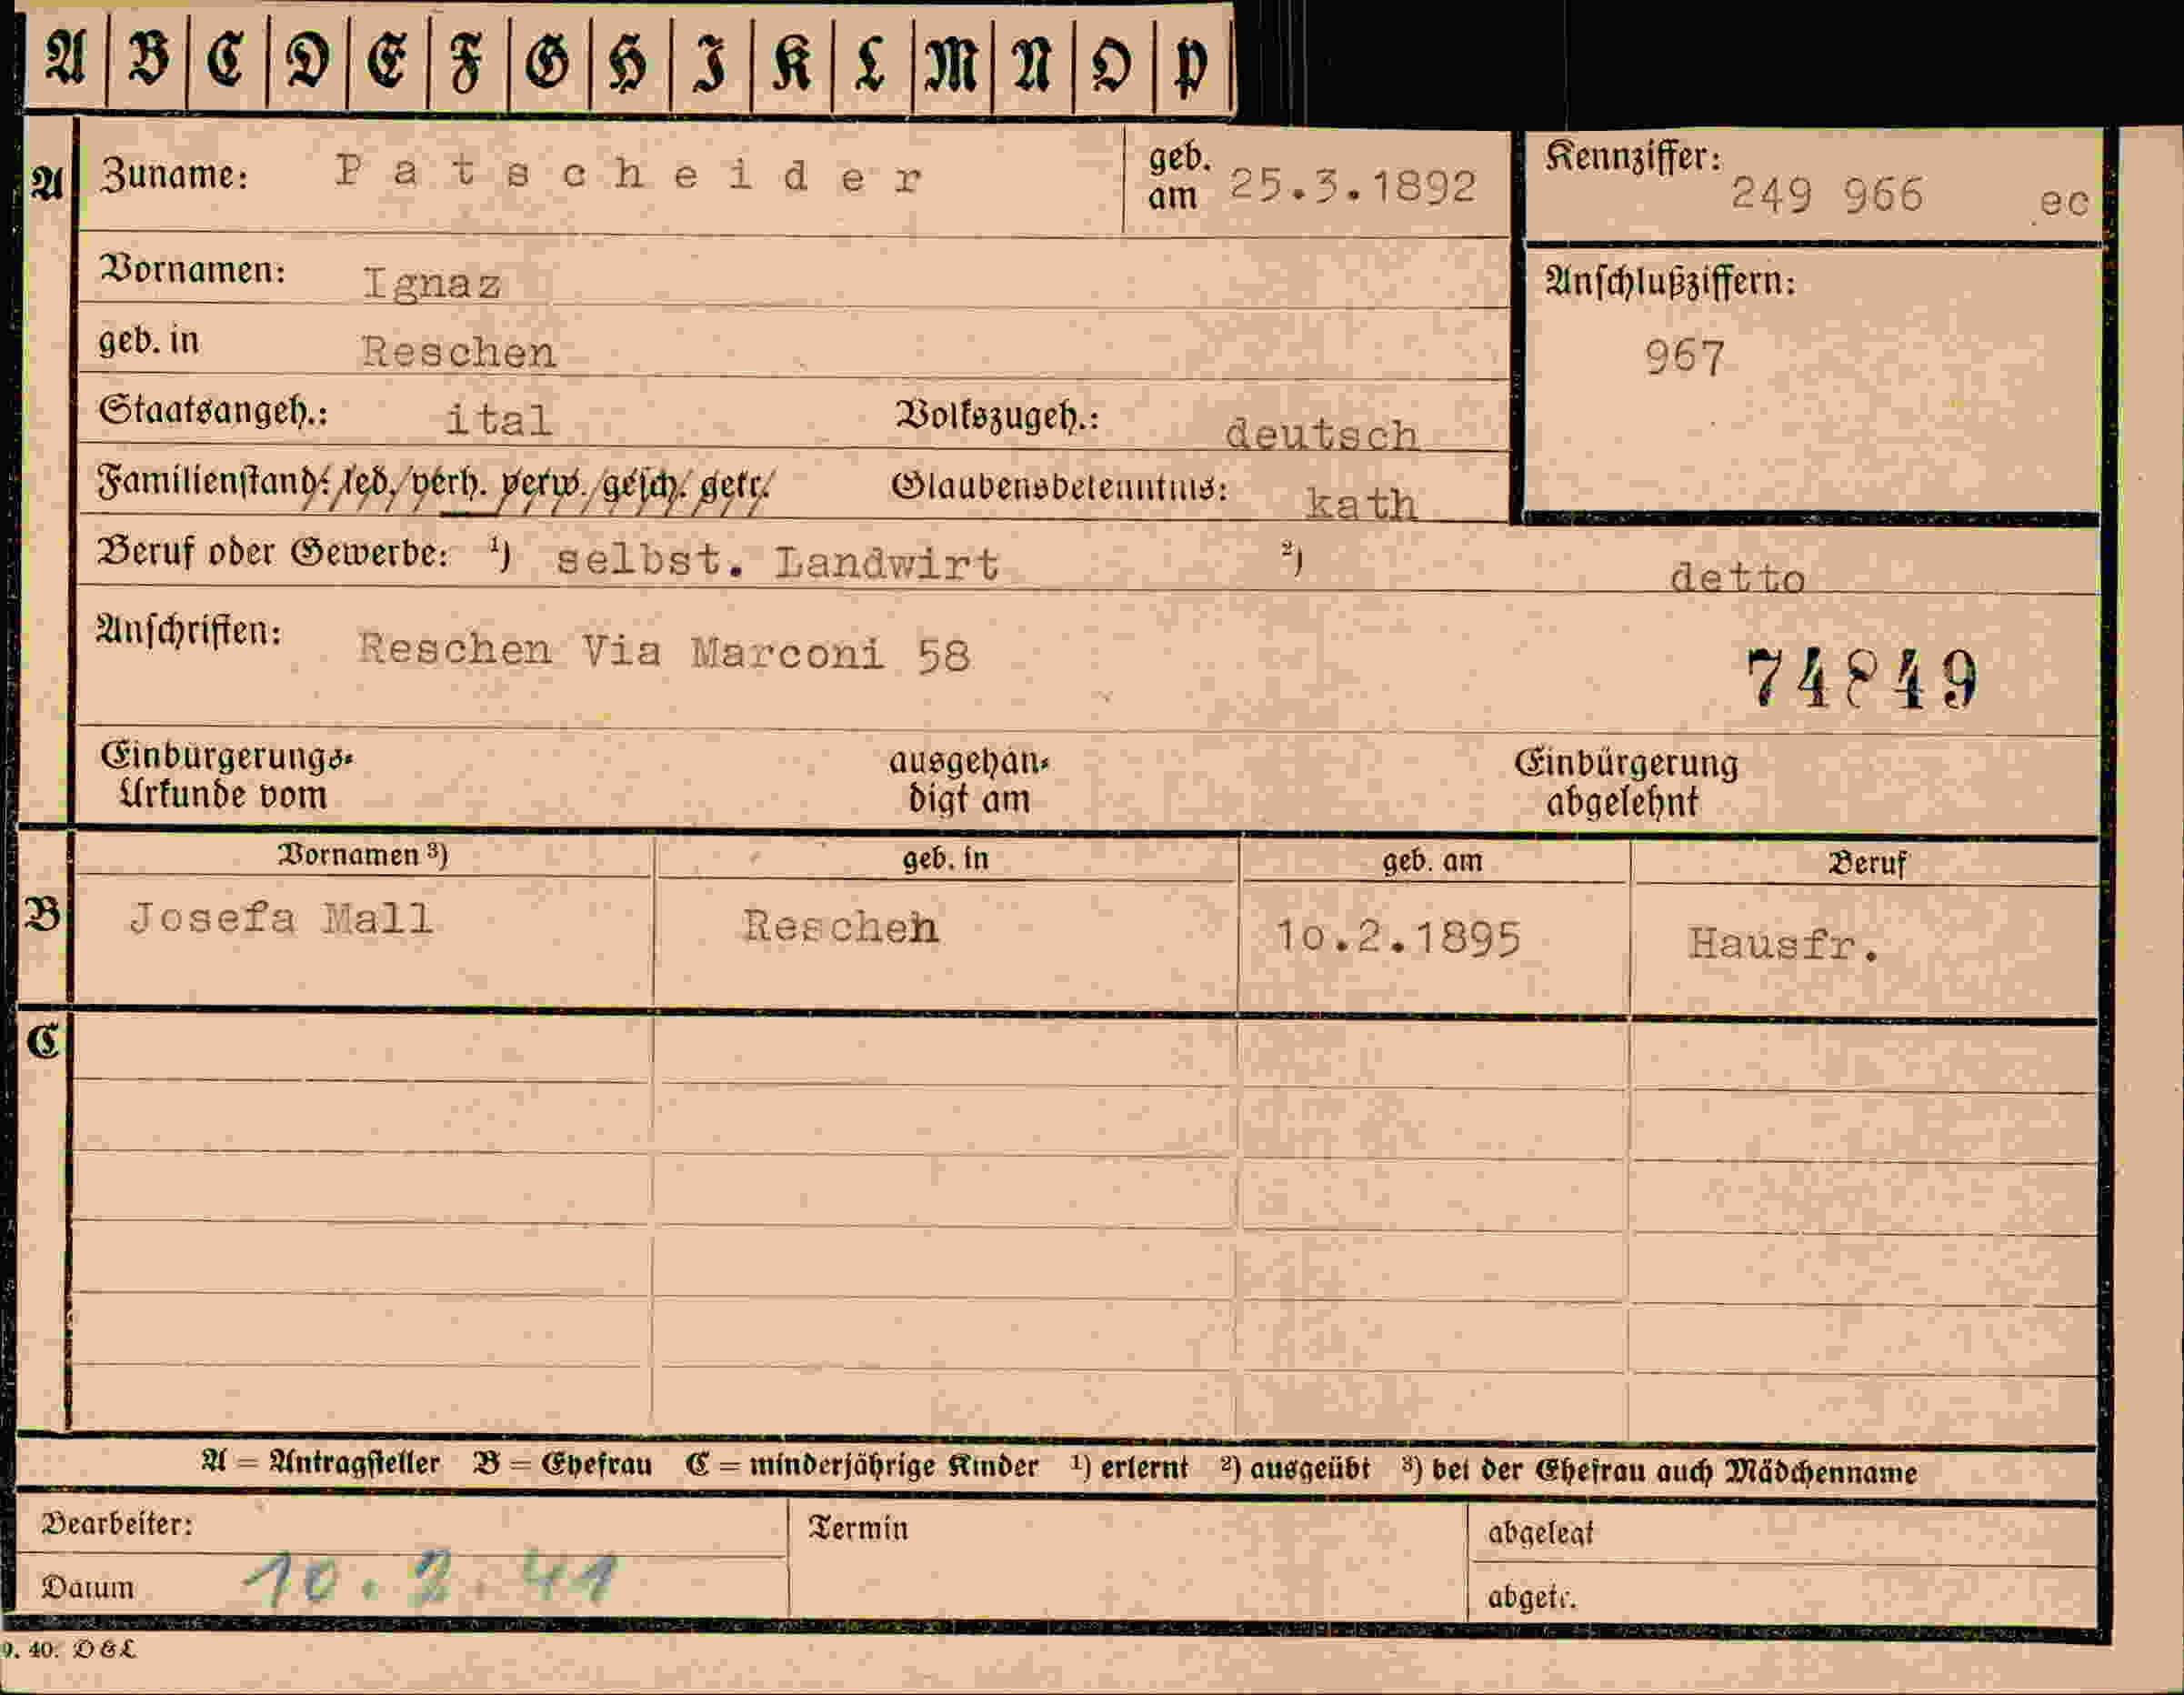 A B C D E F G H I K L M N O P
A Zuname: Patscheider geb. am 25.3.1892 Kennziffer: 249 966 ec
Vornamen: Ignaz Anschlußziffern:
geb. in Reschen 967
Staatsangeh.: ital Volkszugeh.: deutsch
Familienstand: led. verh. verw. gesch. getr. Glaubensbekenntnis: kath
Beruf oder Gewerbe: ¹) selbst. Landwirt ²) detto
Anschriften: Reschen Via Marconi 58 74849
Einbürgerungs- ausgehän- Einbürgerung
Urkunde vom digt am abgelehnt
Vornamen ³) geb. in geb. am Beruf
B Josefa Mall Reschen 10.2.1895 Hausfr.
C
A = Antragsteller B = Ehefrau C = minderjährige Kinder ¹) erlernt ²) ausgeübt ³) bei der Ehefrau auch Mädchenname
Bearbeiter: Termin abgelegt
Datum 10.2.41 abgetr.
9. 40. D&L